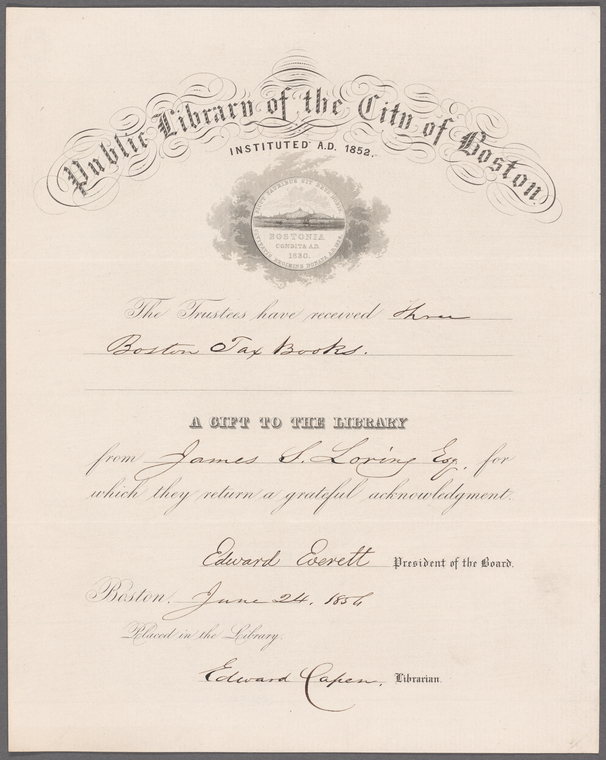 Public Library of the City of Boston.
INSTITUTED A.D. 1852.
SICUT PATRIBUS SIT DEUS NOBIS
BOSTONIA
CONDITA A.D.
1630.
The Trustees have received three
Boston Tax Books.
A GIFT TO THE LIBRARY
from James S. Loring Esq. for
which they return a grateful acknowledgment.
Edward Everett President of the Board.
Boston. June 24. 1856
Placed in the Library.
Edward Capen. Librarian.